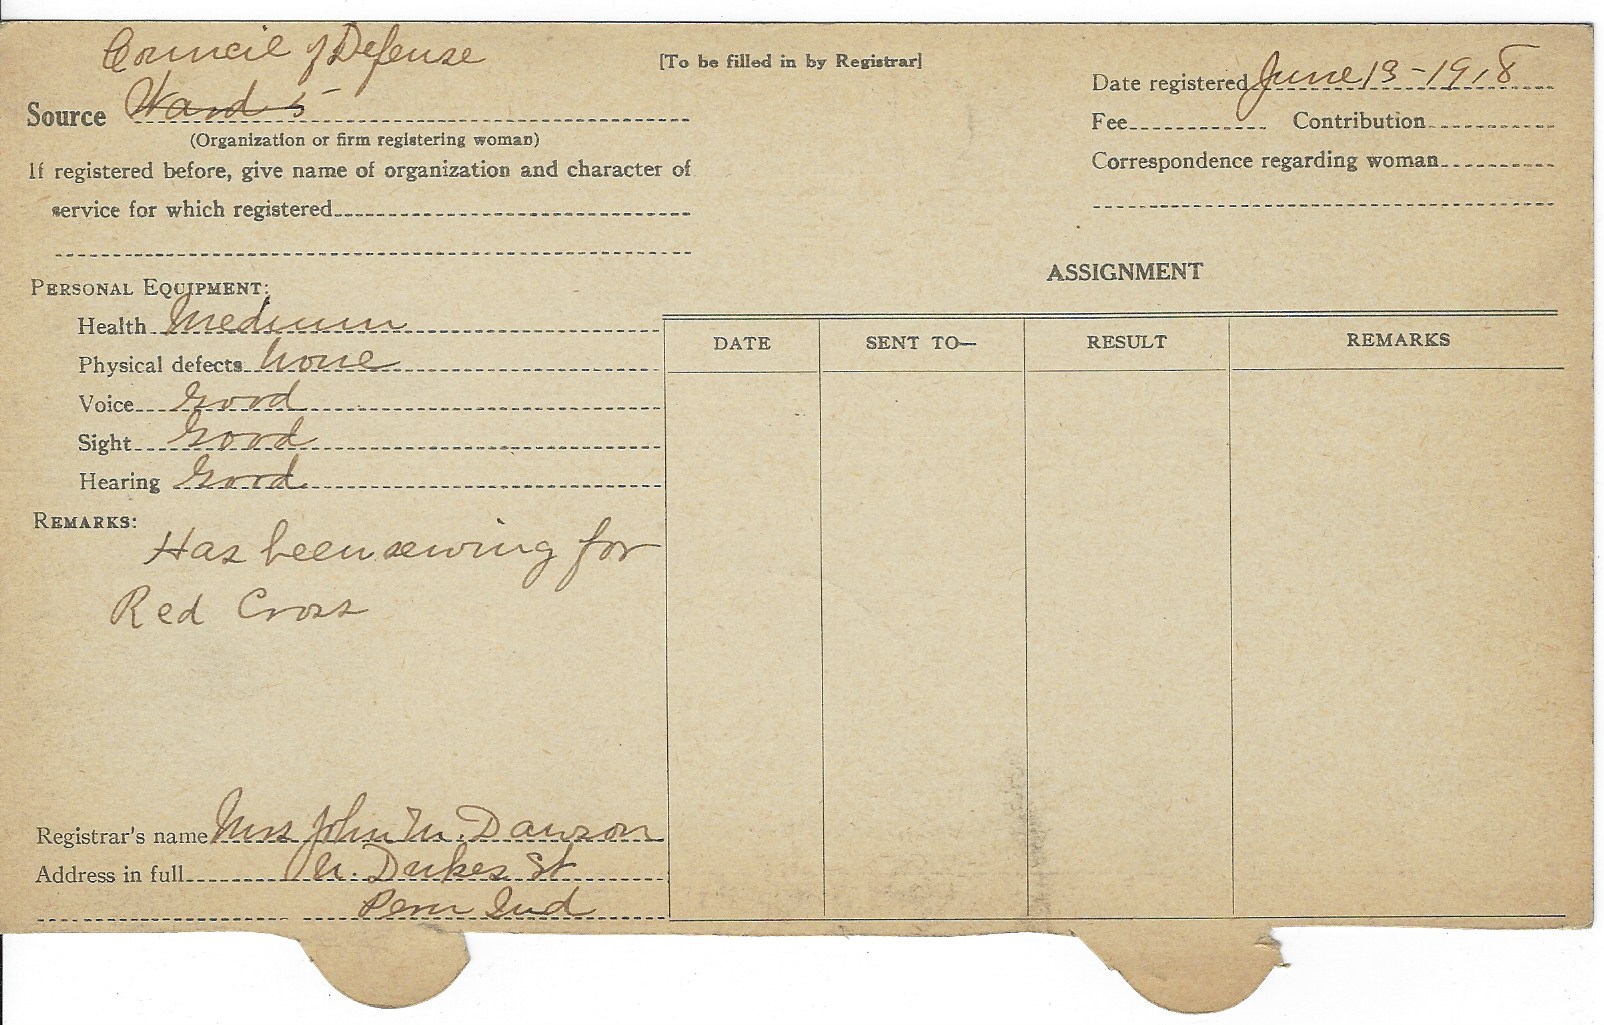 Council of Defense
[To be filled in by Registrar]
Source Ward 5
(Organization or firm registering woman)
If registered before, give name of organization and character of
service for which registered
Date registered June 13-1918
Fee Contribution
Correspondence regarding woman
PERSONAL EQUIPMENT:
Health Medium
Physical defects None
Voice Good
Sight Good
Hearing Good
REMARKS:
Has been sewing for
Red Cross
Registrar's name Mrs John M. Dawson
Address in full N. Dukes St
Peru Ind
ASSIGNMENT
DATE SENT TO— RESULT REMARKS